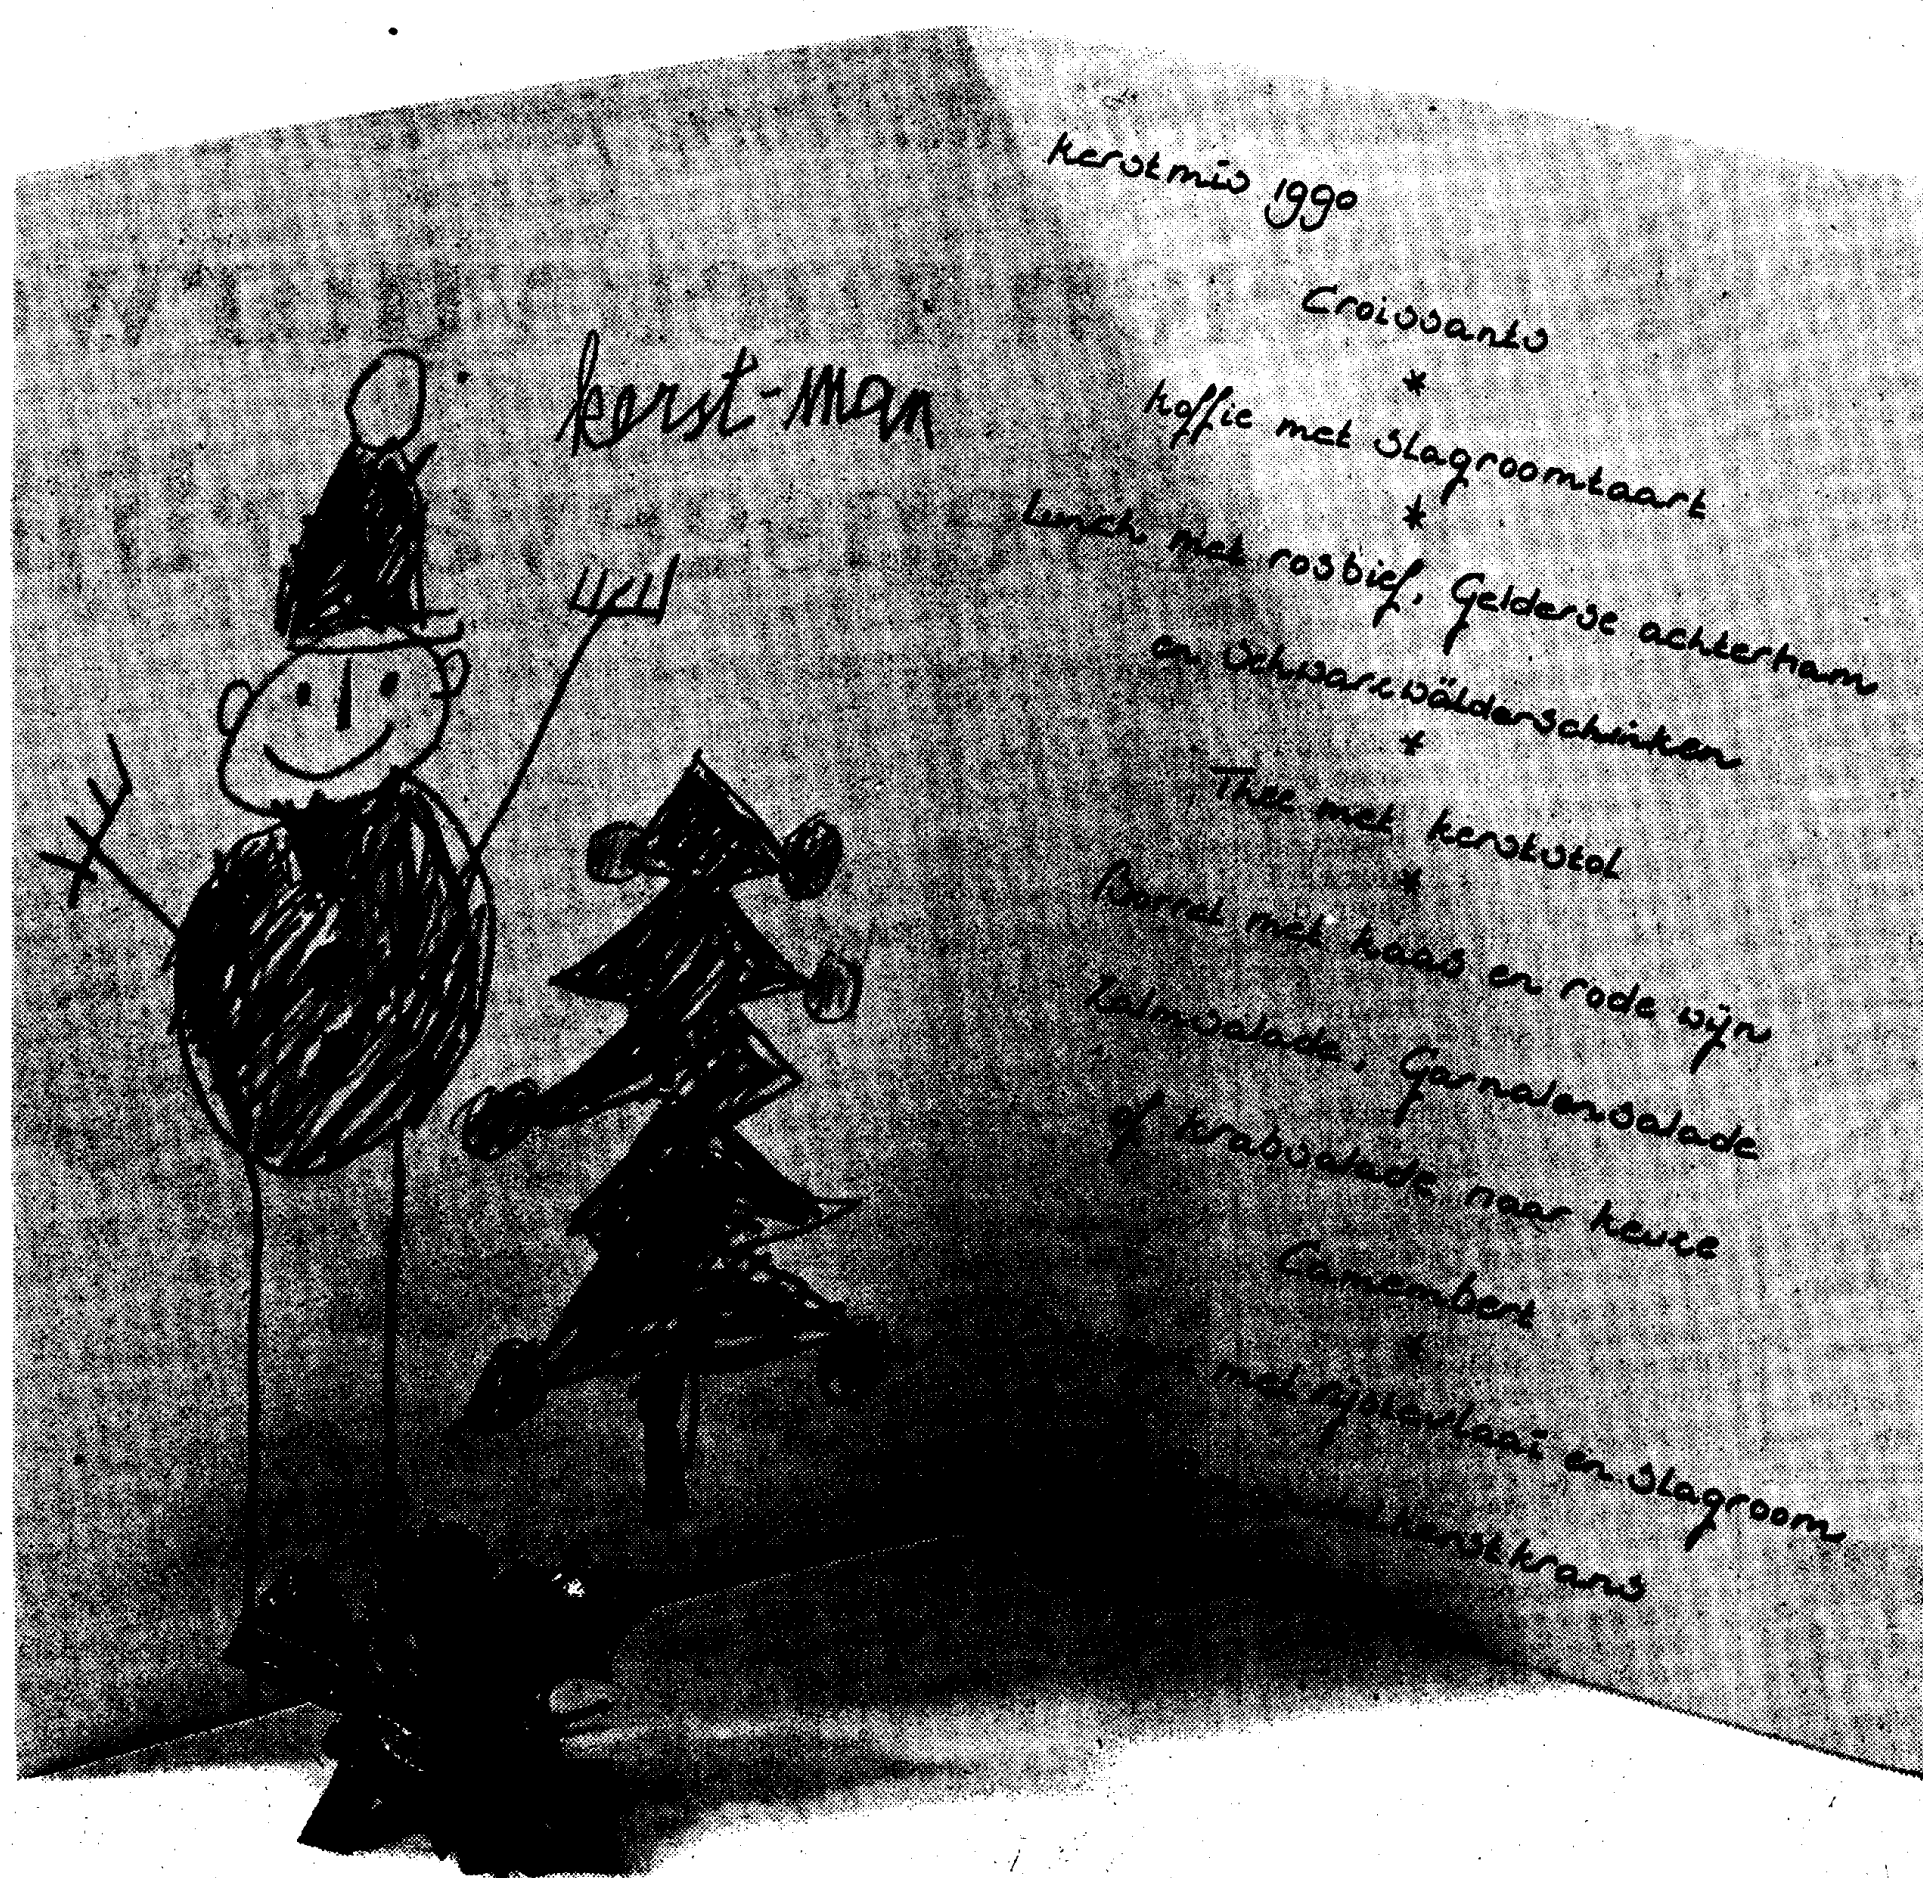 kerst-man
kerstmis 1990
Croissants
*
koffie met slagroomtaart
*
Lunch met rosbief, Gelderse achterham
en Schwarzwälderschinken
*
Thee met kerststol
*
Borrel met kaas en rode wijn
Zalmsalade, Garnalensalade
of krabsalade naar keuze
Camembert
*
met rijstevlaai en slagroom
kerstkrans